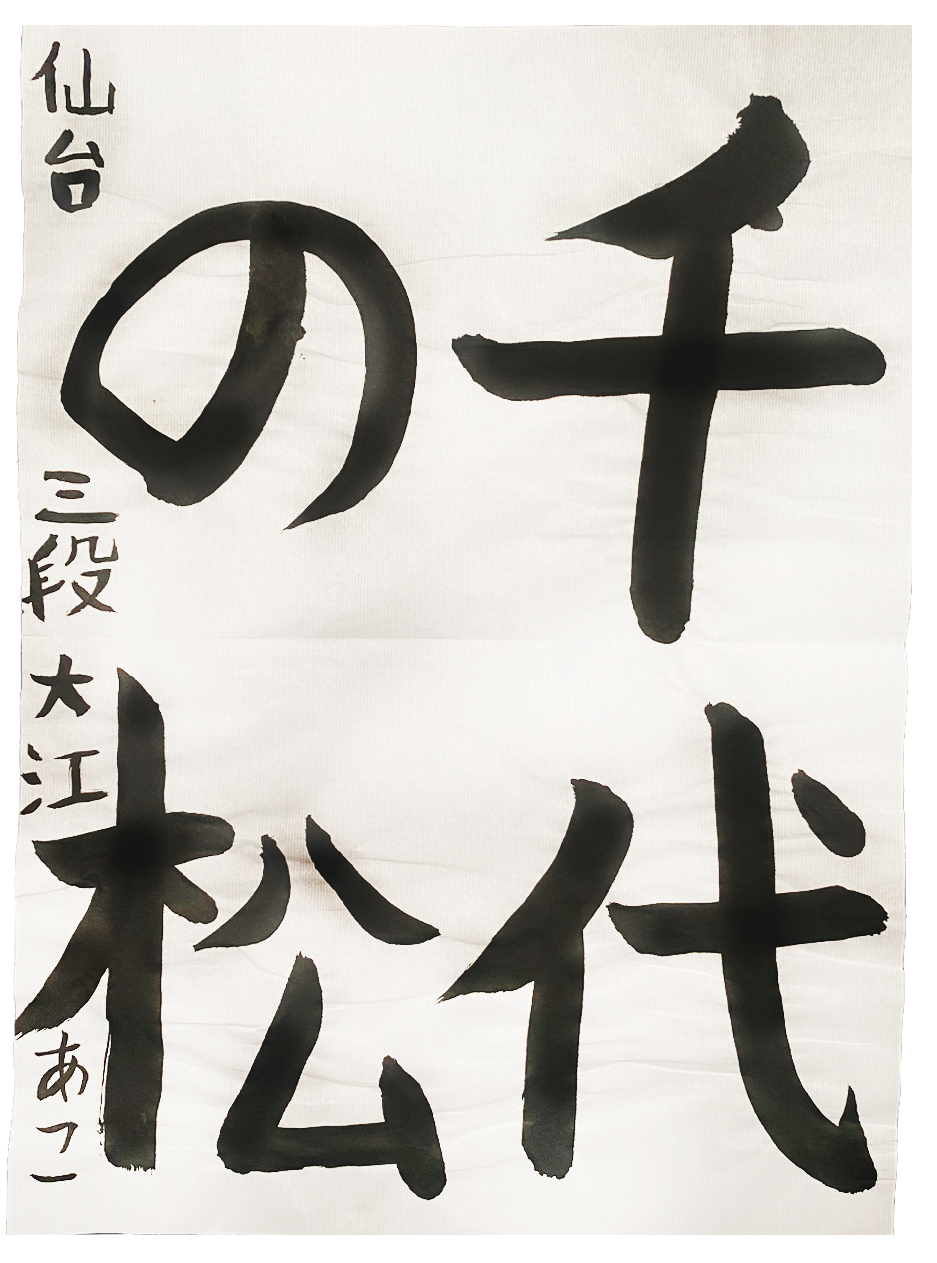 千代
の松
仙台 三段 大江 あこ